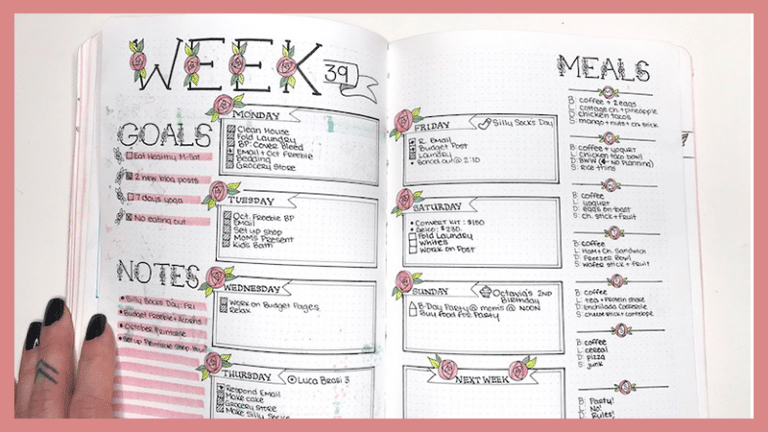 WEEK 39
GOALS
Eat Healthy M-Sat
2 new blog posts
7 days yoga
No eating out
NOTES
Silly Socks Day: FRI
Budget Freebie + Acorns
October Printable
Set up Printable Shop
MONDAY
Clean House
Fold Laundry
BP: Cover Bleed
Email + Oct Freebie
Reading
Grocery Store
TUESDAY
Oct. Freebie BP
Email
Set up Shop
Mom's Present
Kids Bath
WEDNESDAY
Work on Budget Pages
Relax
THURSDAY
Luca Brasi 3
Respond Email
Make cake
Grocery Store
Make Silly Socks
FRIDAY
Silly Socks Day
R. Email
Budget Post
Laundry
Dance out @ 2:10
SATURDAY
Convert Kit: $150
Fold Laundry
Whites
Work on Post
SUNDAY
Octavia's 2ND
Birthday
B-Day Party @ mom's @ NOON
Buy food for Party
NEXT WEEK
MEALS
B: coffee + 2 eggs
L: cottage ch. + pineapple
D: chicken tacos
S: mango + nuts + ch. stick
B: coffee + yogurt
L: chicken taco bowl
D: BWW (NO Planning)
S: rice thins
B: coffee
L: yogurt
D: eggs on toast
S: ch. stick + fruit
B: coffee
L: Ham + Ch. Sandwich
D: Freezer Bowl
S: wafer stick + fruit
B: coffee
L: tea + protein shake
D: Enchilada Casserole
S: cheese stick + cantelope
B: coffee
L: cereal
D: pizza
S: junk
B: Party!
L: No!
D: Rules!